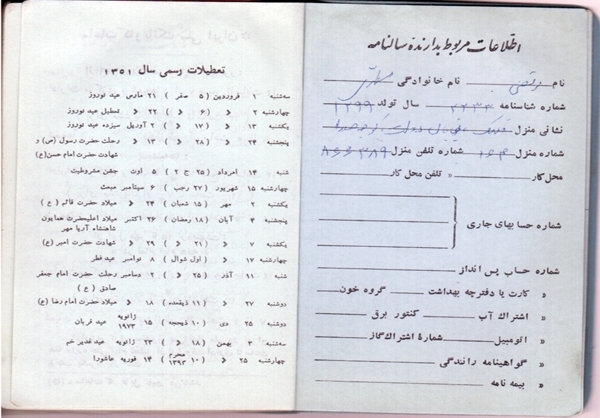 اطلاعات مربوط بدارنده سالنامه
نام مرتضی نام خانوادگی
شماره شناسنامه ۲۲۳۴ سال تولد ۱۲۹۹
نشانی منزل
شماره منزل ۱۶۴ شماره تلفن منزل ۸۶۶۳۸۹
محل کار « تلفن محل کار
شماره حسابهای جاری
شماره حساب پس انداز
« کارت یا دفترچه بهداشت گروه خون
« اشتراك آب کنتور برق
« اتومبیل شمارهٔ اشتراك گاز
« گواهینامه رانندگی
« بیمه نامه
تعطیلات رسمی سال ۱۳۵۱
سه‌شنبه ۱ فروردین ( ۵ صفر ) ۲۱ مارس عید نوروز
چهارشنبه ۲ « ( ۶ « ) ۲۲ « تعطیل عید نوروز
یکشنبه ۱۳ « ( ۱۷ « ) ۲ آوریل سیزده عید نوروز
پنجشنبه ۲۴ « ( ۲۸ « ) ۱۳ « رحلت حضرت رسول (ص) و
شهادت حضرت امام حسن(ع)
شنبه ۱۴ امرداد ( ۲۵ ج ۲ ) ۵ اوت جشن مشروطیت
چهارشنبه ۱۵ شهریور ( ۲۷ رجب ) ۶ سپتامبر مبعث
یکشنبه ۲ مهر ( ۱۵ شعبان ) ۲۴ « میلاد حضرت قائم ( ع )
پنجشنبه ۴ آبان ( ۱۸ رمضان ) ۲۶ اکتبر میلاد اعلیحضرت همایون
شاهنشاه آریا مهر
یکشنبه ۷ « ( ۲۱ « ) ۲۹ « شهادت حضرت امیر (ع)
چهارشنبه ۱۷ « ( اول شوال ) ۸ نوامبر عید فطر
شنبه ۱۱ آذر ( ۲۵ « ) ۲ دسامبر رحلت حضرت امام جعفر
صادق ( ع )
دوشنبه ۲۷ « ( ۱۱ ذیقعده ) ۱۸ « میلاد حضرت امام رضا (ع)
دوشنبه ۲۵ دی ( ۱۰ ذیحجه ) ۱۵ ژانویه ۱۹۷۳ عید قربان
سه‌شنبه ۳ بهمن ( ۱۸ « ) ۲۳ ژانویه عید غدیر خم
چهارشنبه ۲۵ « ( ۱۰ محرم ۱۳۹۳ ) ۱۴ فوریه عاشورا